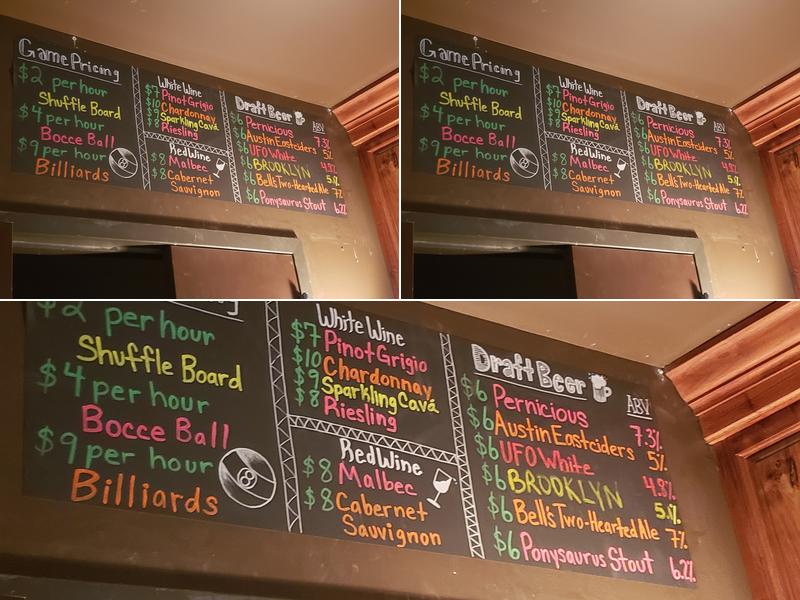 Game Pricing
$2 per hour
Shuffle Board
$4 per hour
Bocce Ball
$9 per hour
Billiards
8
White Wine
$7 Pinot Grigio
$10 Chardonnay
$9 Sparkling Cavá
$8 Riesling
Red Wine
$8 Malbec
$8 Cabernet
Sauvignon
Draft Beer
ABV
$6 Pernicious 7.3%
$6 Austin Eastciders 5%
$6 UFO White 4.8%
$6 BROOKLYN
$6 Bell's Two-Hearted Ale 7%
$6 Ponysaurus Stout 6.2%
Game Pricing
$2 per hour
Shuffle Board
$4 per hour
Bocce Ball
$9 per hour
Billiards
8
White Wine
$7 Pinot Grigio
$10 Chardonnay
$9 Sparkling Cavá
$8 Riesling
Red Wine
$8 Malbec
$8 Cabernet
Sauvignon
Draft Beer
ABV
$6 Pernicious 7.3%
$6 Austin Eastciders 5%
$6 UFO White 4.8%
$6 BROOKLYN
$6 Bell's Two-Hearted Ale 7%
$6 Ponysaurus Stout 6.2%
$2 per hour
Shuffle Board
$4 per hour
Bocce Ball
$9 per hour
Billiards
8
White Wine
$7 Pinot Grigio
$10 Chardonnay
$9 Sparkling Cavá
$8 Riesling
Red Wine
$8 Malbec
$8 Cabernet
Sauvignon
Draft Beer
ABV
$6 Pernicious 7.3%
$6 Austin Eastciders 5%
$6 UFO White 4.8%
$6 BROOKLYN
$6 Bell's Two-Hearted Ale 7%
$6 Ponysaurus Stout 6.2%